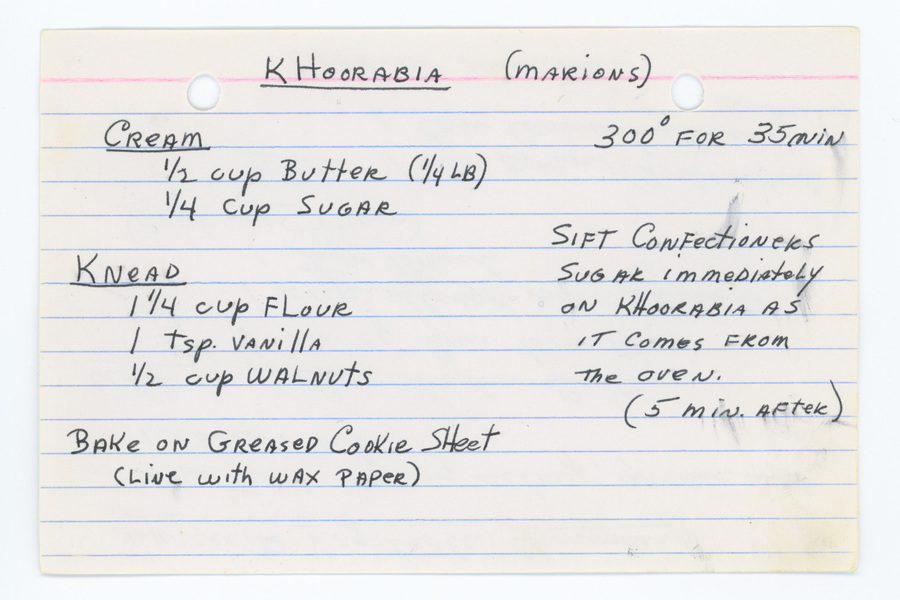 KHOORABIA (MARIONS)
CREAM
1/2 cup Butter (1/4 LB)
1/4 cup SUGAR
300° FOR 35 MIN
KNEAD
1 1/4 cup FLOUR
1 tsp. VANIllA
1/2 cup WALNUTS
SIFT CONFectioNeRS
SUGAR immediAtely
ON KHOORABIA AS
IT comes FROM
The OVEN.
(5 min. AFTER)
BAKe ON GREASED Cookie SHeet
(LiNe with WAX PAPeR)